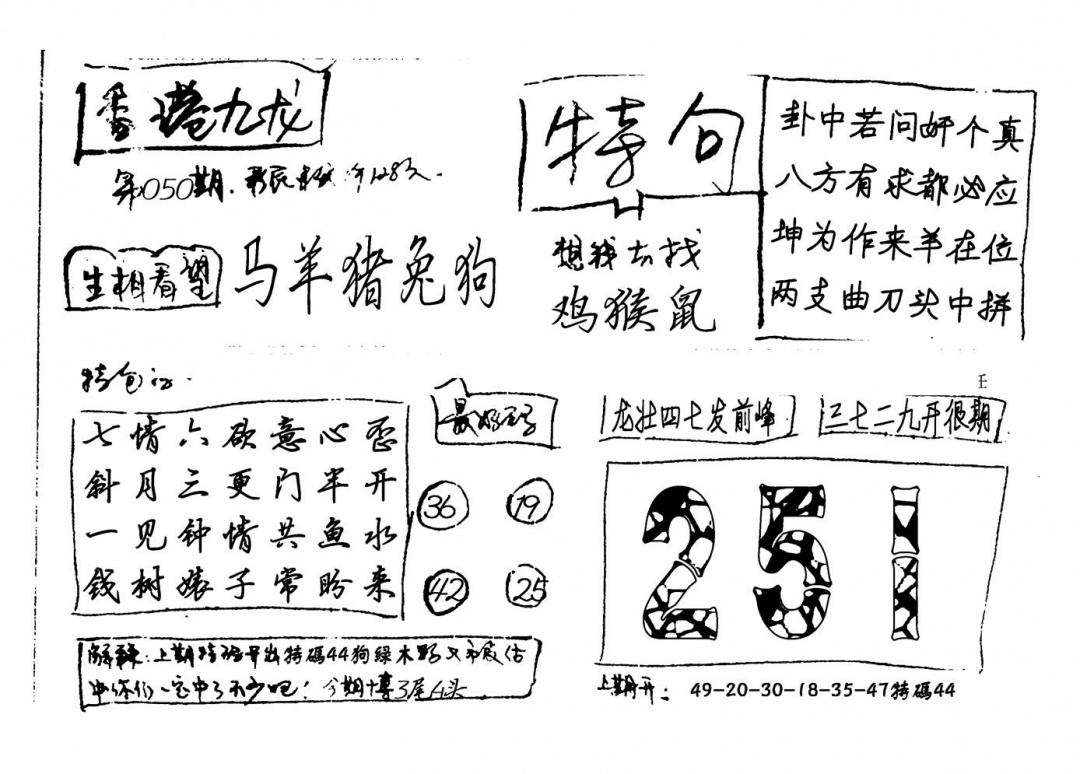 香港九龙
第050期
生相看望
马羊猪兔狗
特句
想我去找
鸡猴鼠
卦中若问好个真
八方有求都必应
坤为作来羊在位
两支曲刀头中拼
七情六欲意心歪
斜月三更门半开
一见钟情共鱼水
钱树婊子常盼来
36
19
42
25
王
龙壮四七发前峰
三七二九开很期
251
解释:上期特码开出特碼44狗綠木野又
中你们一定中了不少吧!今期博3尾4头
上期开: 49-20-30-18-35-47特碼44